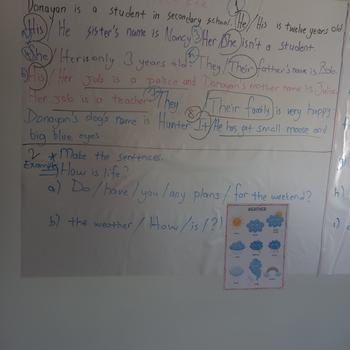 Donayan is a student in secondary school. He / His is twelve years old.
His / He sister's name is Nancy. Her / She isn't a student.
She / Her is only 3 years old. They / Their father's name is Bob.
His / Her job is a police and Donayan's mother name is Julie.
Her job is a teacher. They / Their family is very happy
Donayan's dog's name is Hunter. It / He has got small moose and
big blue eyes.
2 * Make the sentences.
Example How is life?
a) Do / have / you / any plans / for the weekend?
b) the weather / How / is / ?
WEATHER